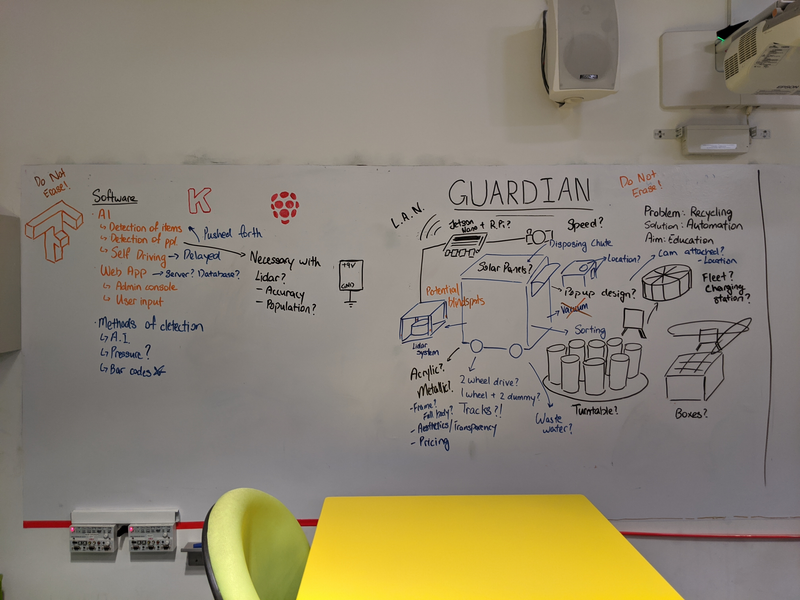 Do Not
Erase!
Software
K
· AI
↳ Detection of items
↳ Detection of ppl.
Pushed forth
↳ Self Driving → Delayed
Web App → Server? Database?
↳ Admin console
↳ User input
Necessary with
Lidar?
- Accuracy
- Population?
+9V
GND
· Methods of detection
↳ A.I.
↳ Pressure?
↳ Bar codes
GUARDIAN
Do Not
Erase!
L.A.N.
Jetson
Nano + R.P.?
Speed?
Disposing Chute
Solar Panels?
Location?
Potential
blindspots
Popup design?
Vacuum
Sorting
Lidar
system
Acrylic?
Metallic?
- Frame?
Full body?
- Aesthetics/Transparency
- Pricing
2 wheel drive?
1 wheel + 2 dummy?
Tracks?!
Waste
water?
Turntable?
Boxes?
Problem: Recycling
Solution: Automation
Aim: Education
Cam attached?
- Location
Fleet?
Charging
station?